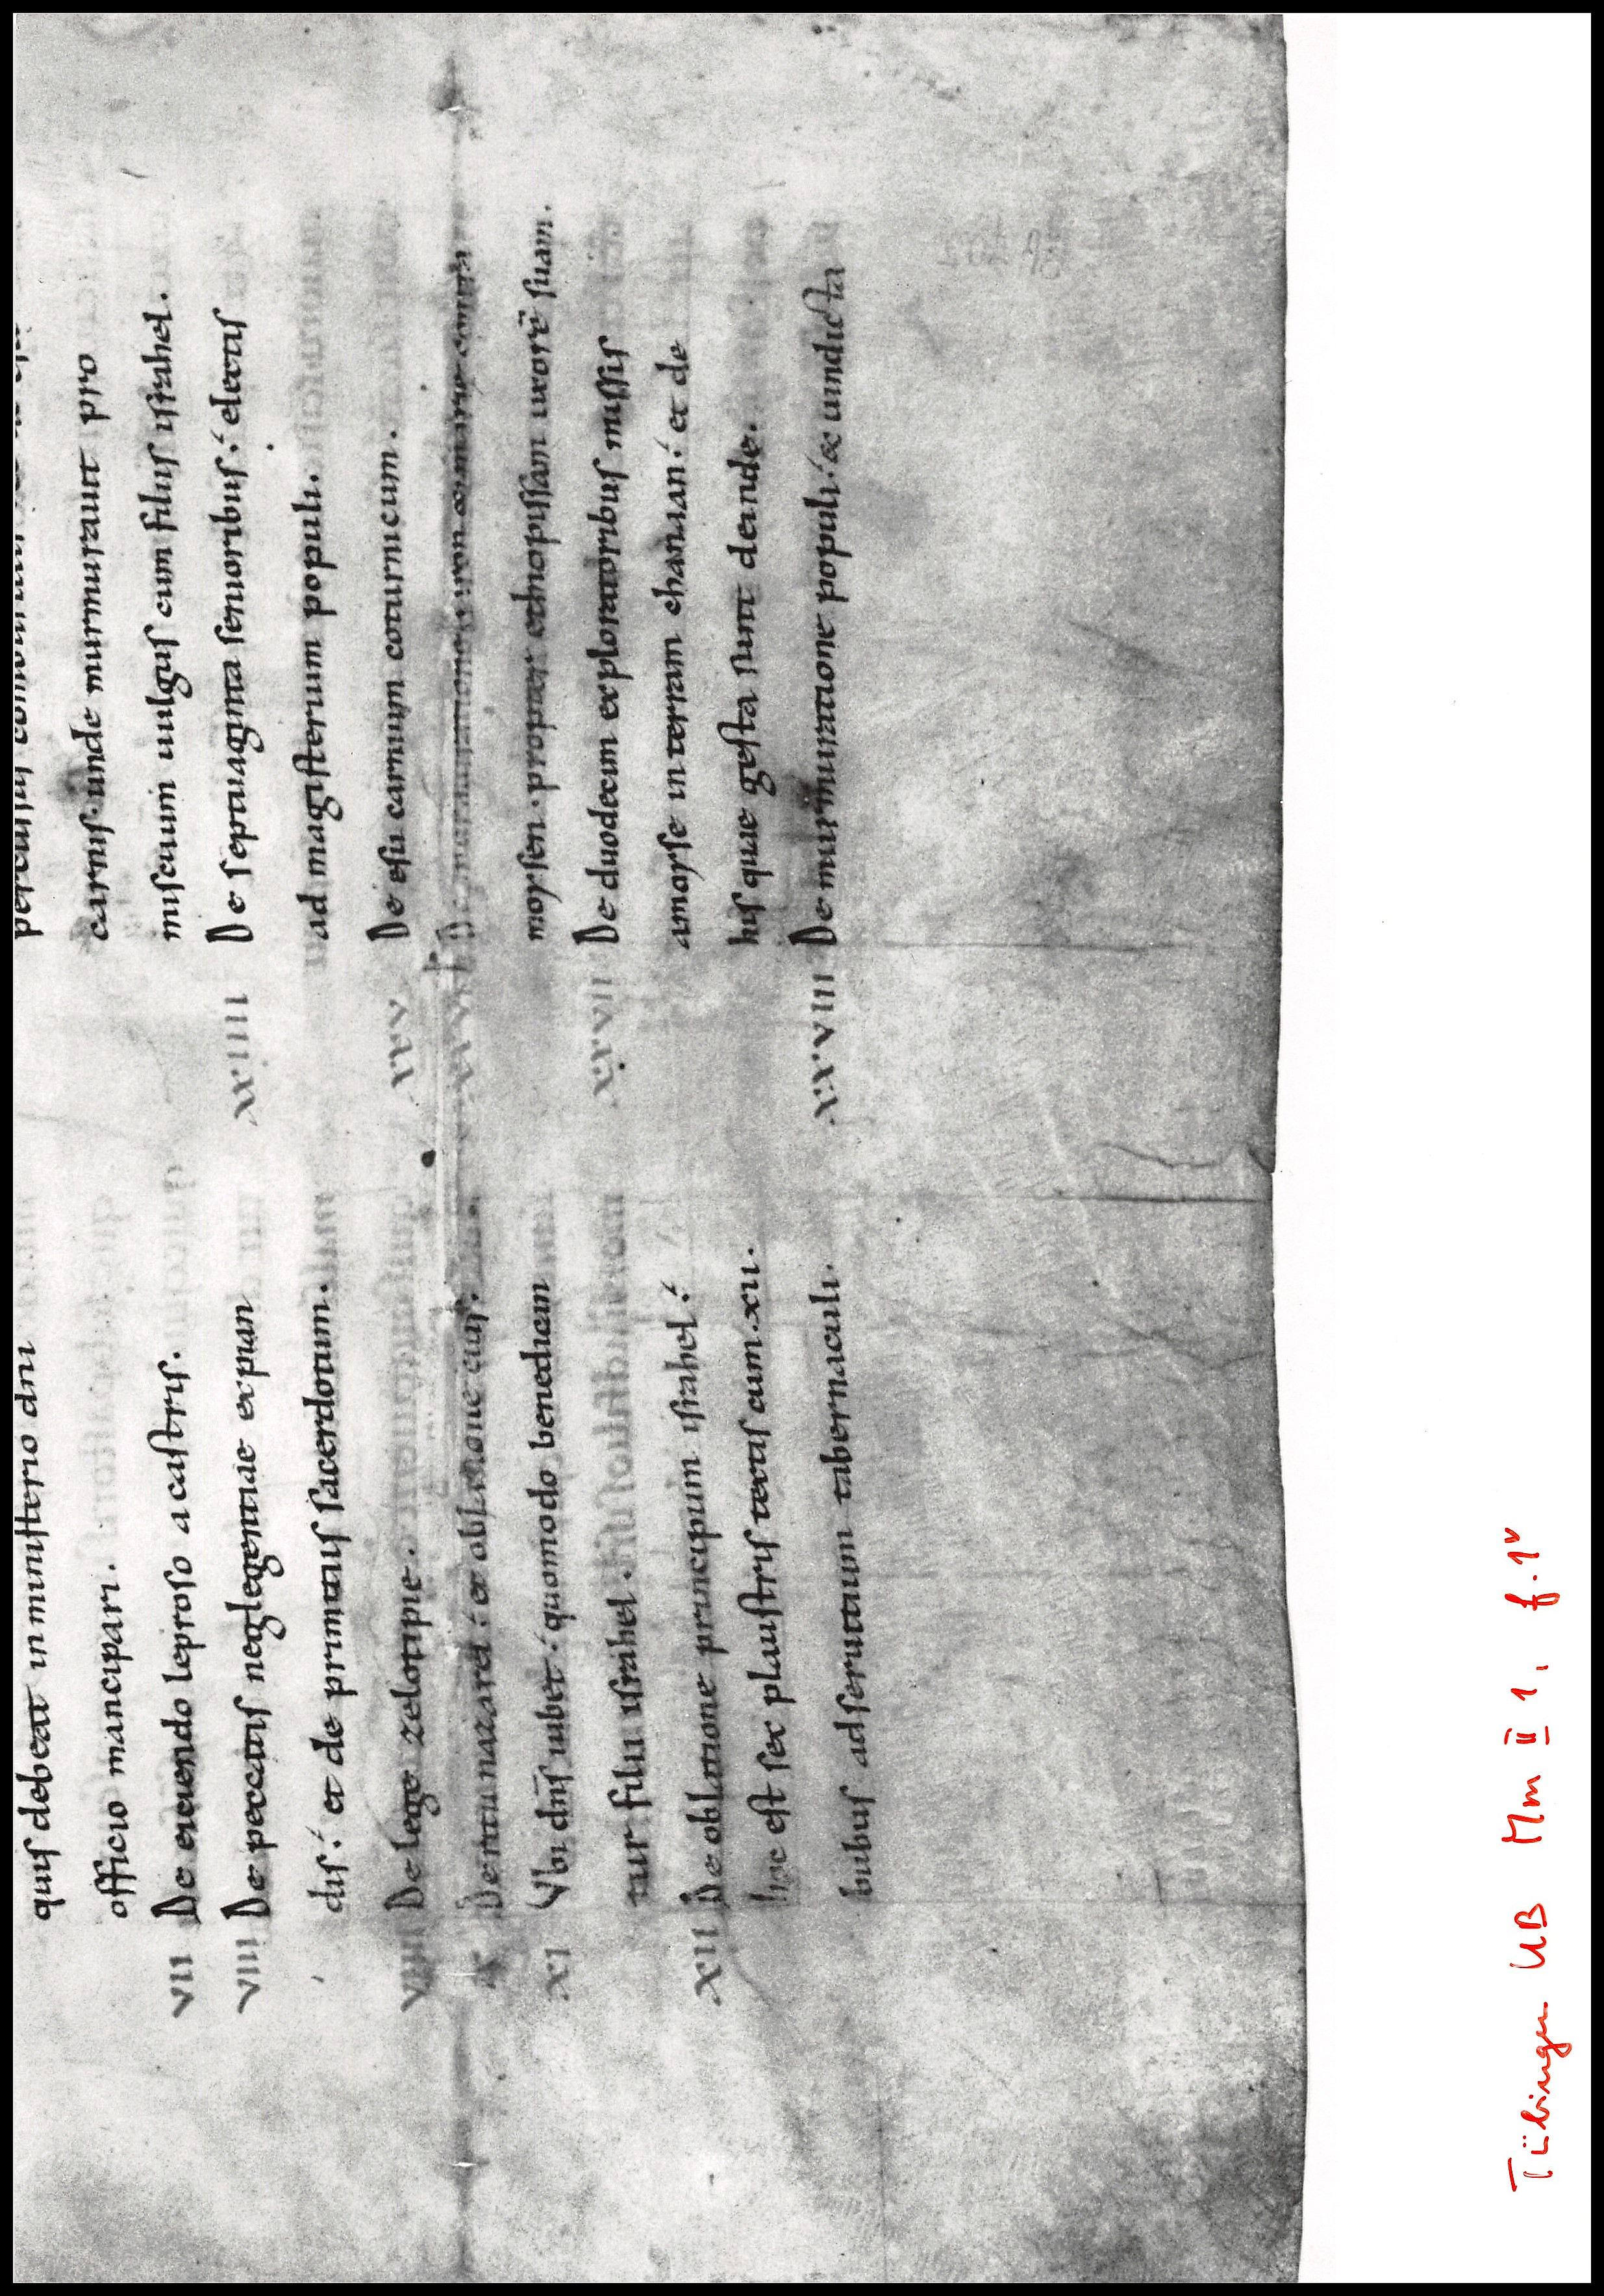 quis debeat in ministerio dni
officio mancipari.
VII De eiciendo leproso a castris.
VIII De peccatis neglegentiae expian
dis: et de primitiis sacerdotum.
VIIII De lege zelotipie.
X De ritu nazarei: et oblatione eius.
XI Vbi dn̄s iubet: quomodo benedican
tur filii israhel.
XII De oblatione principum israhel:
hoc est sex plaustris tectis cum .xii.
bubus ad seruitium tabernaculi.
percussus
carnis. unde murmurauit pro
miscuum uulgus cum filiis israhel.
XXIIII De septuaginta senioribus: electis
ad magisterium populi.
XXV De esu carnium coturnicum.
XXVI De murmuratione aaron et marie contra
moysen. propter ethiopissam uxorē suam.
XXVII De duodecim exploratoribus missis
a moyse in terram chanaan: et de
his que gesta sunt deinde.
XXVIII De murmuratione populi: & uindicta
Tübingen UB Mm II 1, f. 1v